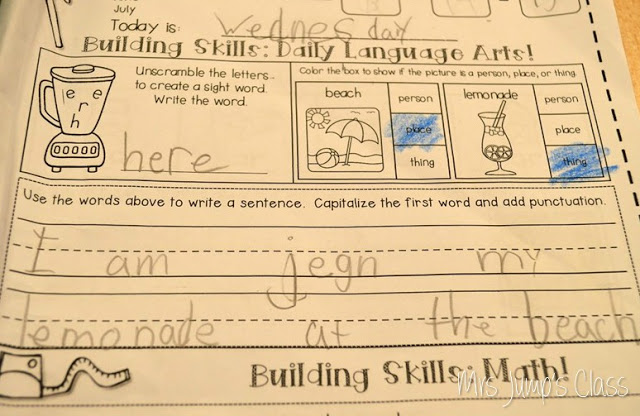 July
Today is: Wednesday
Building Skills: Daily Language Arts!
Unscramble the letters
to create a sight word.
Write the word.
e e
r
h
here
Color the box to show if the picture is a person, place, or thing.
beach
person
place
thing
lemonade
person
place
thing
Use the words above to write a sentence. Capitalize the first word and add punctuation.
I am jegn my
lemonade at the beach
Building Skills: Math!
Mrs. Jump's Class